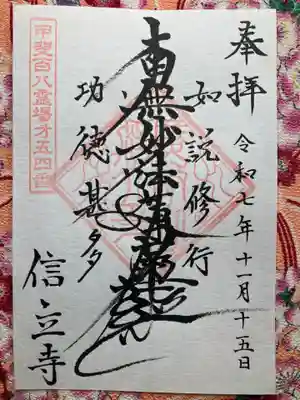 奉拝
令和七年十一月十五日
如説修行
南無妙法蓮華経
功徳甚多
甲斐百八霊場第五四番
信立寺